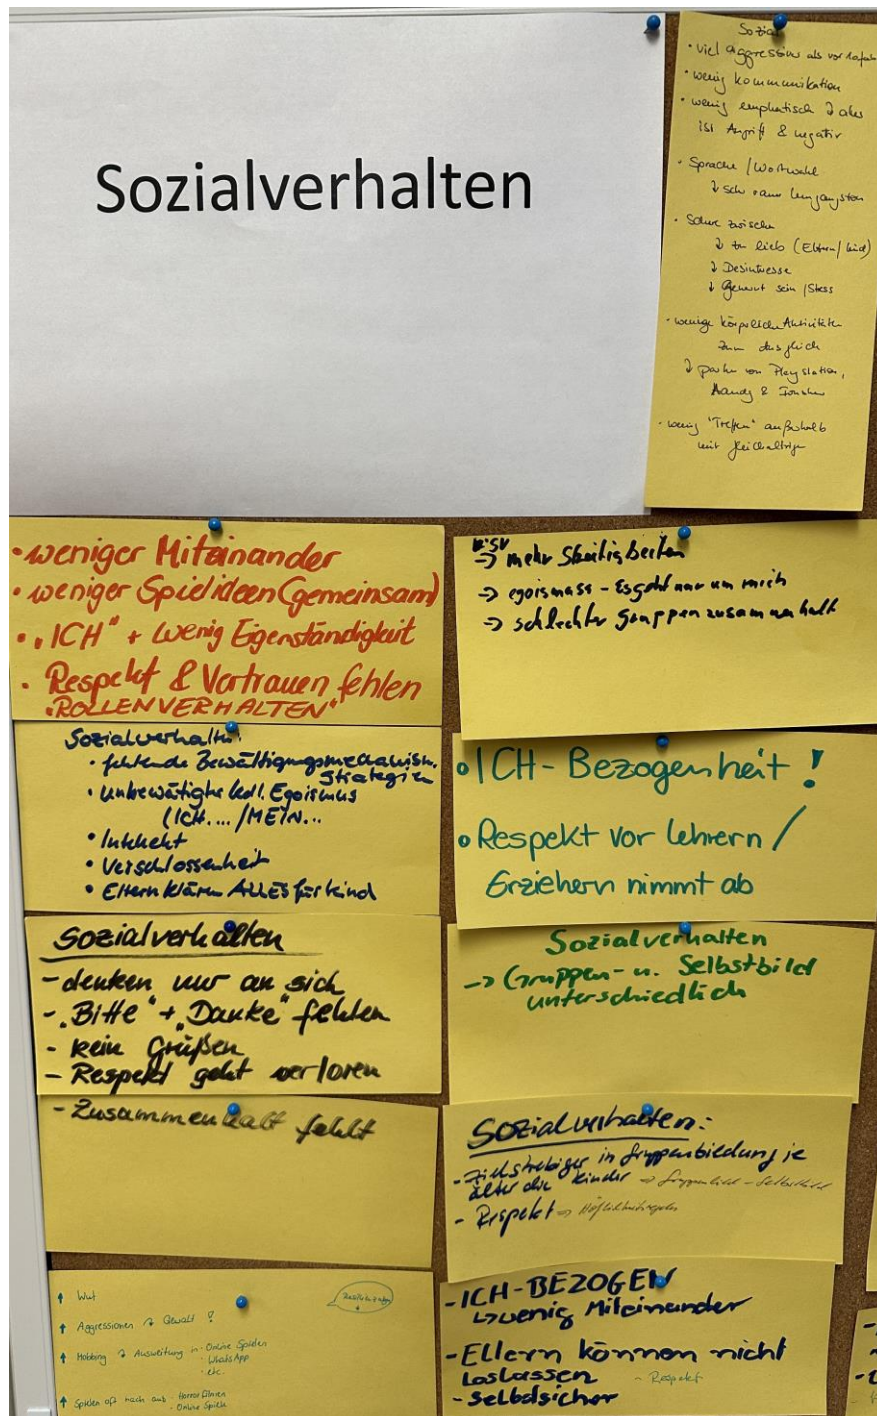 Sozialverhalten
Sozial
• viel aggressiver als vor
• wenig kommunikation
• wenig emphatisch
ist Angriff & negativ
• Sprache / Wortwahl
↓ Umgangston
• zwischen
↓ zu lieb (Eltern/Kind)
↓ Desinteresse
↓ Genervt sein / Stess
• wenige körperliche Aktivitäten
zum Ausgleich
↓ von Playstation,
Handy &
• wenig "Treffen" außerhalb
mit gleichaltrigen
• weniger Miteinander
• weniger Spielideen (gemeinsam)
• "ICH" + wenig Eigenständigkeit
• Respekt & Vertrauen fehlen
"ROLLENVERHALTEN"
→ mehr Streitigkeiten
→ egoismass - Es geht nur um mich
→ schlechter Gruppenzusammenhalt
Sozialverhalten:
• fehlende Bewältigungsmechanism.
Strategien
• Egoismus
(ICH... / MEIN...
•
• Verschlossenheit
• Eltern klären ALLES für Kind
• ICH-Bezogenheit!
• Respekt vor Lehrern /
Erziehern nimmt ab
Sozialverhalten
- denken nur an sich
- "Bitte" + "Danke" fehlen
- kein Grüßen
- Respekt geht verloren
Sozialverhalten
→ Gruppen- u. Selbstbild
unterschiedlich
- Zusammenhalt fehlt
Sozialverhalten:
- Zielstrebiger in Gruppenbildung je
älter die Kinder → Gruppenbild - Selbstbild
- Respekt → Höflichkeitsregeln
↑ Wut
↑ Aggressionen → Gewalt !
↑ Mobbing → Ausweitung in - Online Spielen
- WhatsApp
- etc.
↑ Spielen oft nach aus - Horrorfilmen
- Online Spiele
- ICH-BEZOGEN
↳ wenig Miteinander
- Eltern können nicht
loslassen - Respekt
- selbstsicher